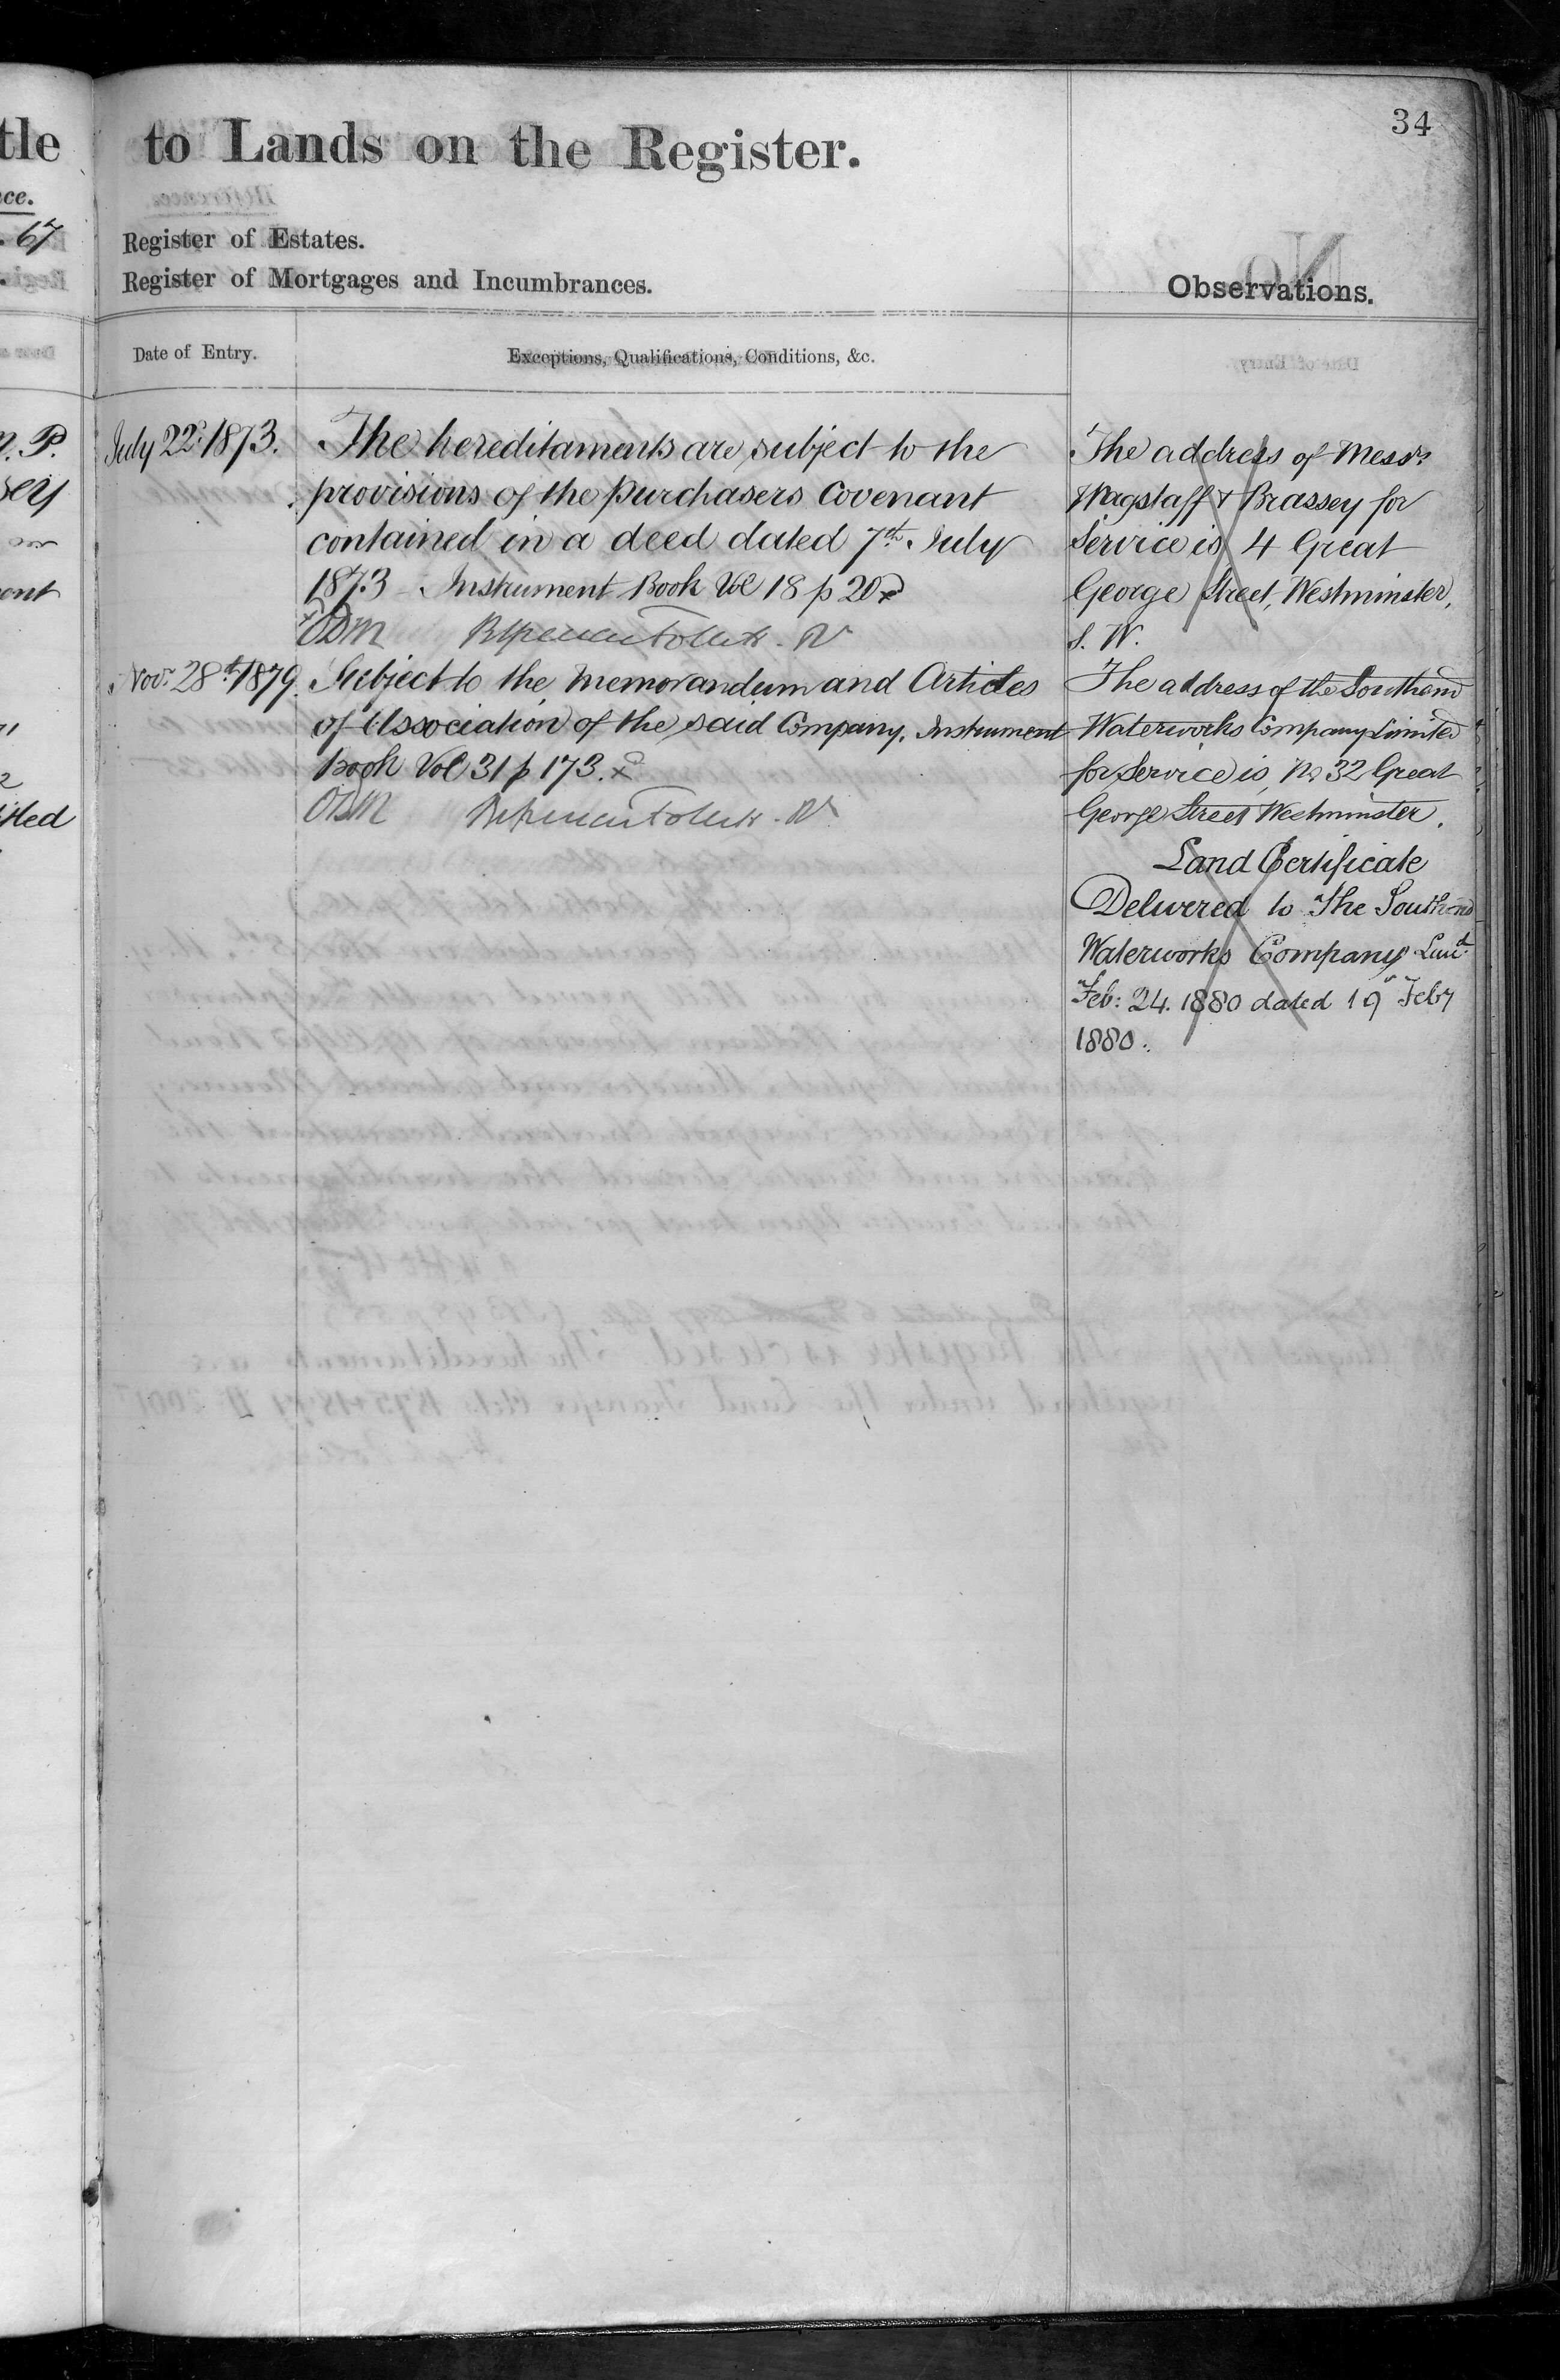 tle to Lands on the Register.
34
ce.
67
Register of Estates.
Register of Mortgages and Incumbrances.
Observations.
Date of Entry.
Exceptions, Qualifications, Conditions, &c.
July 22d 1873.
The hereditaments are subject to the
provisions of the purchasers Covenant
contained in a deed dated 7th July
1873 - Instrument Book Vol 18 p 20
Novr 28th 1879.
Subject to the Memorandum and Articles
of Association of the said Company. Instrument
Book Vol 31 p 173.
The address of Messrs
Wagstaff & Brassey for
Service is 4 Great
George Street, Westminster,
S. W.
The address of the Southend
Waterworks Company Limited
for Service is, No 32 Great
George Street Westminster.
Land Certificate
Delivered to The Southend
Waterworks Company Limd
Feb: 24. 1880 dated 19 Feby
1880.